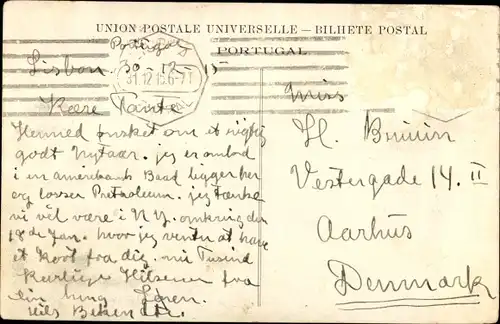 UNION POSTALE UNIVERSELLE – BILHETE POSTAL
PORTUGAL
Portugal
Lisbon 30-12-15
31.12.15
Kære Tante
Hermed ønsket om et rigtig
godt Nytaar. jeg er ombord
i en amerikansk Baad ligger her
og losser Pretroleum. jeg tænke
vi vel være i N.Y. omkring den
18de Jan. hvor jeg venter at have
et Kort fra dig. nu Tusind
Kærlige Hilsener fra
din
Miss
H. Bruun
Vestergade 14. II
Aarhus
Denmark